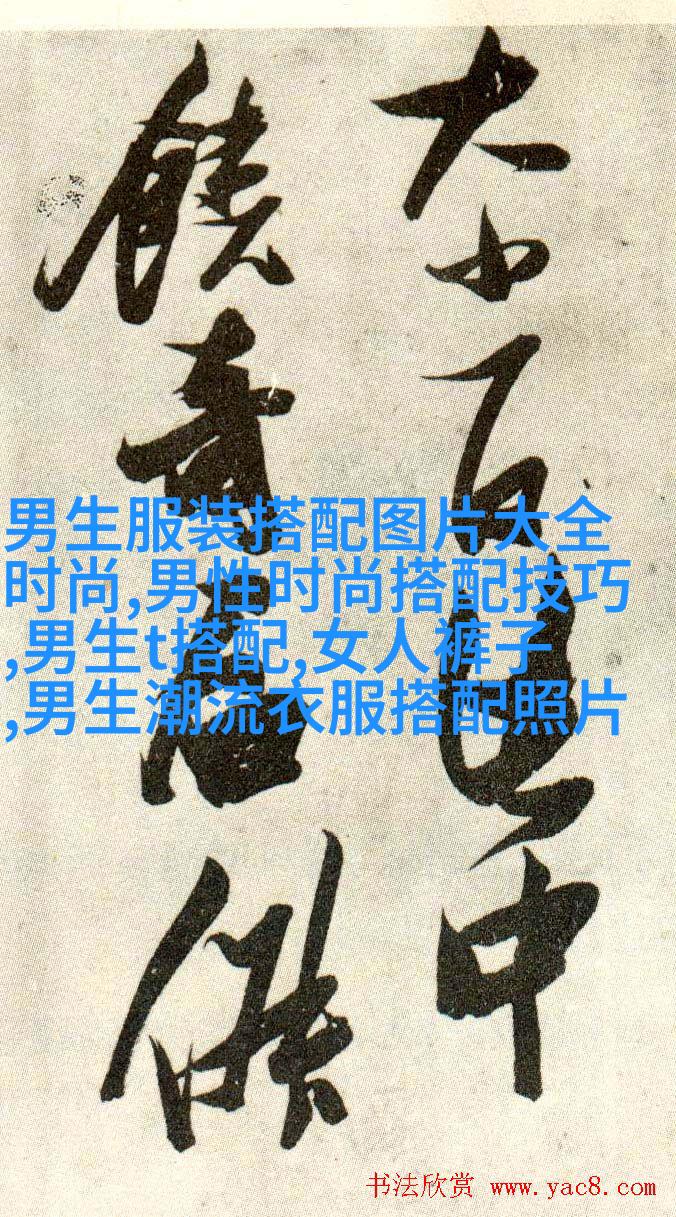 大小百中
饒奇
男生服装搭配图片大全
时尚,男性时尚搭配技巧
,男生t搭配,女人裤子
,男生潮流衣服搭配照片
书法欣赏 www.yac8.com